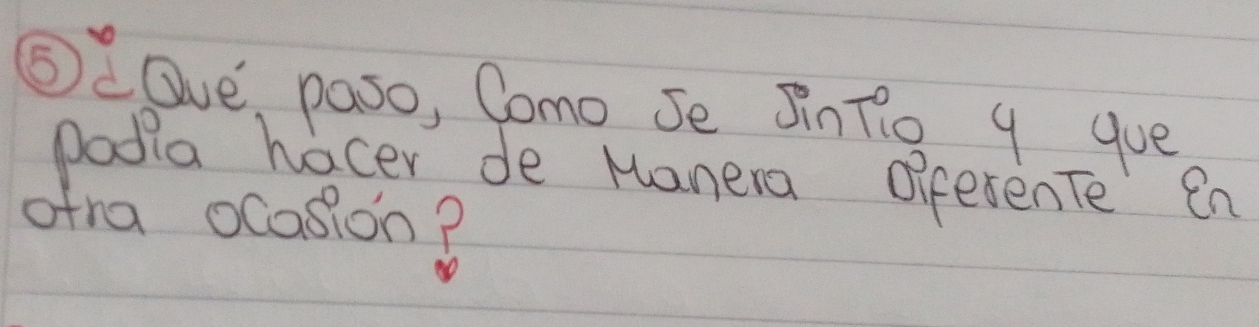 ⑤ ¿Qué paso, Como se sintio y que
podia hacer de Manera Diferente En
otra ocasión?